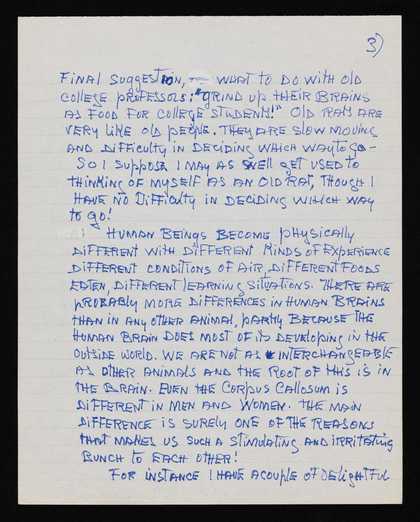 3)
FINAL SUGGESTION, — WHAT TO DO WITH OLD
COLLEGE PROFESSORS: "GRIND UP THEIR BRAINS
AS FOOD FOR COLLEGE STUDENTS!" OLD RATS ARE
VERY LIKE OLD PEOPLE. THEY ARE SLOW MOVING
AND DIFFICULTY IN DECIDING WHICH WAY TO GO—
SO I SUPPOSE I MAY AS WELL GET USED TO
THINKING OF MYSELF AS AN OLD RAT, THOUGH I
HAVE NO DIFFICULTY IN DECIDING WHICH WAY
TO GO!
HUMAN BEINGS BECOME PHYSICALLY
DIFFERENT WITH DIFFERENT KINDS OF EXPERIENCE
DIFFERENT CONDITIONS OF AIR, DIFFERENT FOODS
EATEN, DIFFERENT LEARNING SITUATIONS. THERE ARE
PROBABLY MORE DIFFERENCES IN HUMAN BRAINS
THAN IN ANY OTHER ANIMAL, PARTLY BECAUSE THE
HUMAN BRAIN DOES MOST OF ITS DEVELOPING IN THE
OUTSIDE WORLD. WE ARE NOT AS INTERCHANGEABLE
AS OTHER ANIMALS AND THE ROOT OF THIS IS IN
THE BRAIN. EVEN THE CORPUS CALLOSUM IS
DIFFERENT IN MEN AND WOMEN. THE MAIN
DIFFERENCE IS SURELY ONE OF THE REASONS
THAT MAKES US SUCH A STIMULATING AND IRRITATING
BUNCH TO EACH OTHER!
FOR INSTANCE I HAVE A COUPLE OF DELIGHTFUL